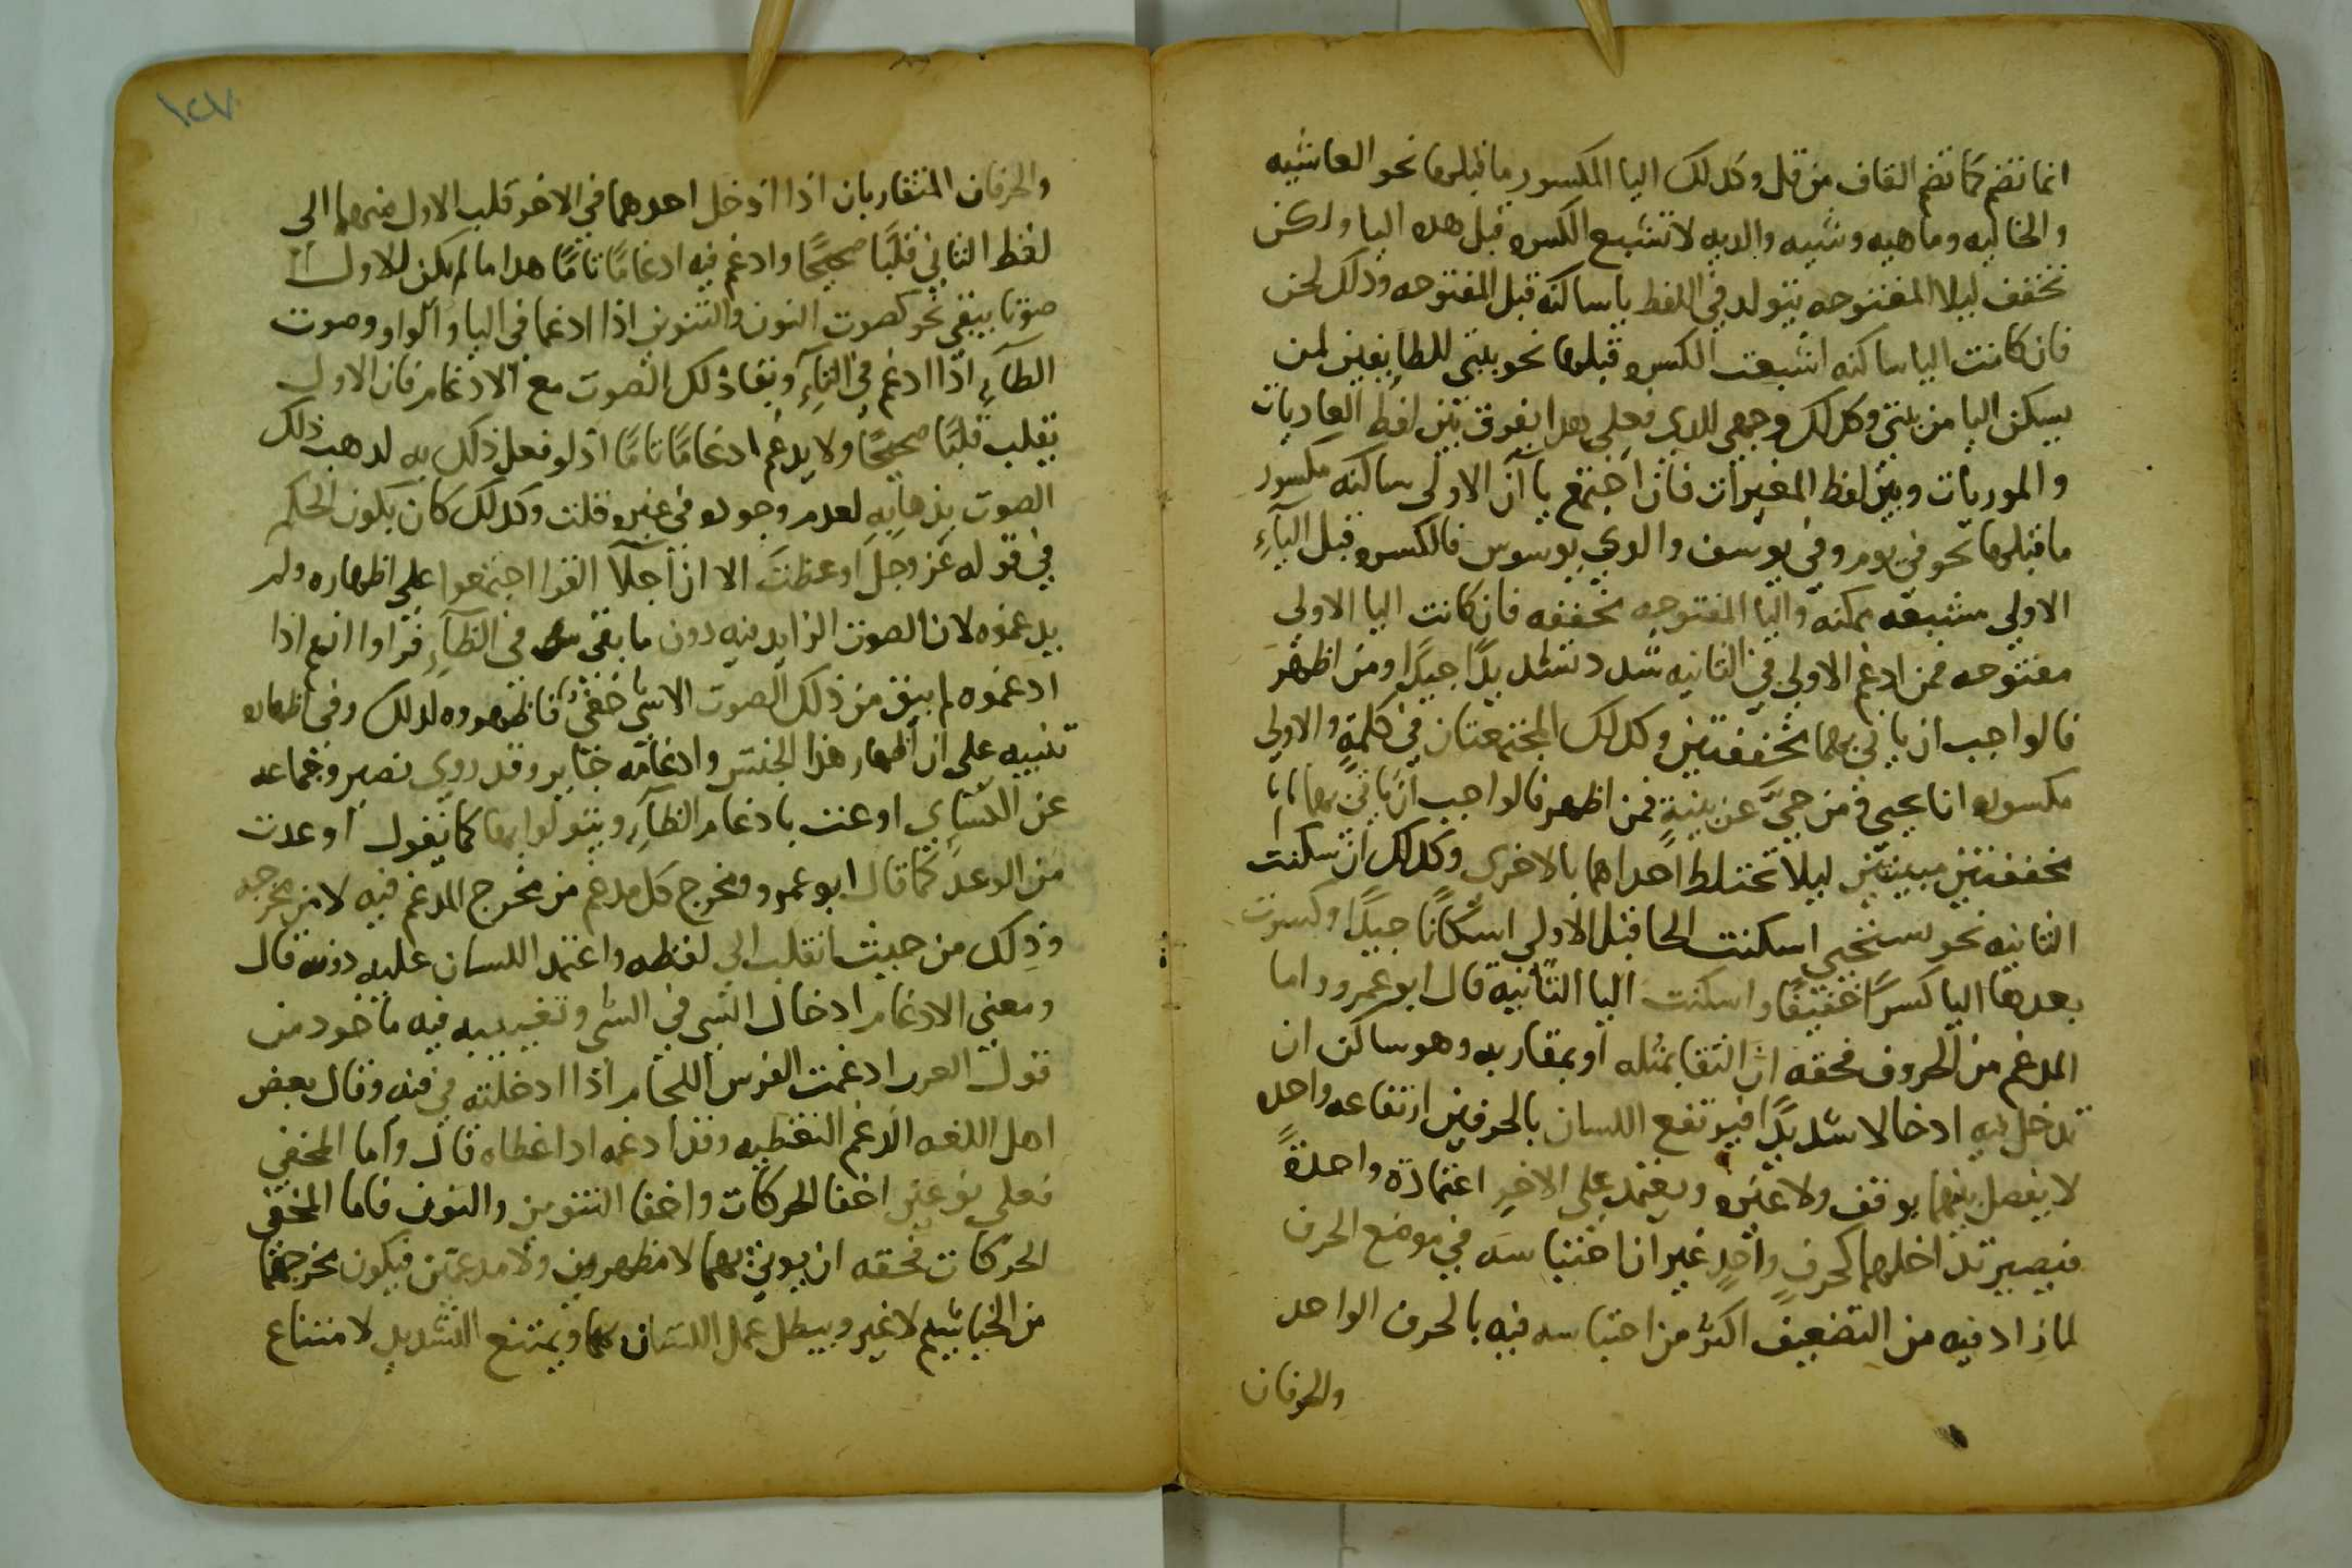 انما تضم كما تضم القاف من قل وكدلك اليا المكسور ما قبلها نحو الغاشيه
والخاليه وماهيه وشيه والديه لا تشبع الكسره قبل هده اليا ولكن
تخفف ليلا المفتوحه يتولد في اللفط يا ساكنه قبل المفتوحه ودلك لحن
فان كانت اليا ساكنه اشبعت الكسره قبلها نحو بيتي للطايفين لمن
يسكن اليا من بيتي وكدلك وجهي للدي فعلى هدا يفرق بين لفظ العاديات
والموريات وبين لفظ المغيرات فان اجتمع ياآن الاولى ساكنه مكسور
ما قبلها نحو في يوم وفي يوسف والدي يوسوس فالكسره قبل اليآءِ
الاولى مشبعه ممكنه واليا المفتوحه مخففه فان كانت اليا الاولى
مفتوحه فمن ادغم الاولى في الثانيه شدد تشديدًا جيدًا ومن اظهر
فالواجب ان ياتي بهما مخففتين وكدلك المجتمعتان في كلمةٍ والاولى
مكسوره انا نحيي ومن حيَّ عن بينةٍ فمن اظهر فالواجب ان ياتي بهما
مخففتين مبينتين ليلا تختلط احداهما بالاخرى وكدلك ان سكنت
الثانيه نحو يستحيي اسكنت الحا قبل الاولى اسكانًا جيدًا وكسرت
بعدها اليا كسرًا خفيفًا واسكنت اليا الثانية قال ابو عمرو واما
المدغم من الحروف فحقه ان التقا بمثله او بمقاربه وهو ساكن ان
تدخل فيه ادخالا شديدًا فيرتفع اللسان بالحرفين ارتفاعه واحده
لا يفصل بينهما بوقف ولا غيره ويعتمد على الاخر اعتمادة واحدةً
فيصير تداخلهما كحرفٍ واحدٍ غير ان احتباسه في موضع الحرف
لما زاد فيه من التضعيف اكثر من احتباسه فيه بالحرف الواحد
والحرفان
١٢٧
والحرفان المتقاربان اذا ادخل احدهما في الاخر قلب الاول منهما الى
لفظ الثاني قلبًا صحيحًا وادغم فيه ادغامًا تامًا هدا ما لم يكن للاول
صوتا يبقى نحو كصوت النون والتنوين اذا ادغما في اليا والواو وصوت
الطآءِ اذا ادغم في التآءِ وبقا ذلك الصوت مع الادغام فان الاول
يقلب قلبًا صحيحًا ولا يدغم ادغامًا تامًا اذ لو فعل ذلك به لدهب ذلك
الصوت بذهابه لعدم وجوده في غيره قلت وكدلك كان يكون الحكم
في قوله عز وجل اوعظت الا ان اجلآ القرا اجتمعوا على اظهاره ولم
يدغموه لان الصوت الزايد فيه دون ما بقي في الظآءِ فراوا انهم اذا
ادغموه لم يبق من ذلك الصوت الا شي خفي فاظهروه لدلك وفي اظهاره
تنبيه على ان اظهار هذا الجنس وادغامه جايز وقد روى نصير وجماعه
عن الكساي اوعت بادغام الظآءِ ويتولوا بها كما يقول اوعدت
من الوعد كما قال ابو عمرو ومخرج كل مدغم من مخرج المدغم فيه لا من مخرجه
وذلك من حيث انقلب الى لفظه واعتمد اللسان عليه دونه قال
ومعنى الادغام ادخال الشي في الشي وتغييبه فيه ماخود من
قول العرب ادغمت الفرس اللجام اذا ادخلته في فيه وقال بعض
اهل اللغه الدغم التغطيه وقد ادغمه ادا غطاه قال واما المخفي
فعلى نوعين اخفا الحركات واخفا التنوين والنون فاما المخفى
الحركات فحقه ان يوتى بهما لا مظهرين ولا مدغمين فيكون مخرجهما
من الخياشيم لا غير ويبطل عمل اللسان بهما ويمتنع التشديد لامتناع